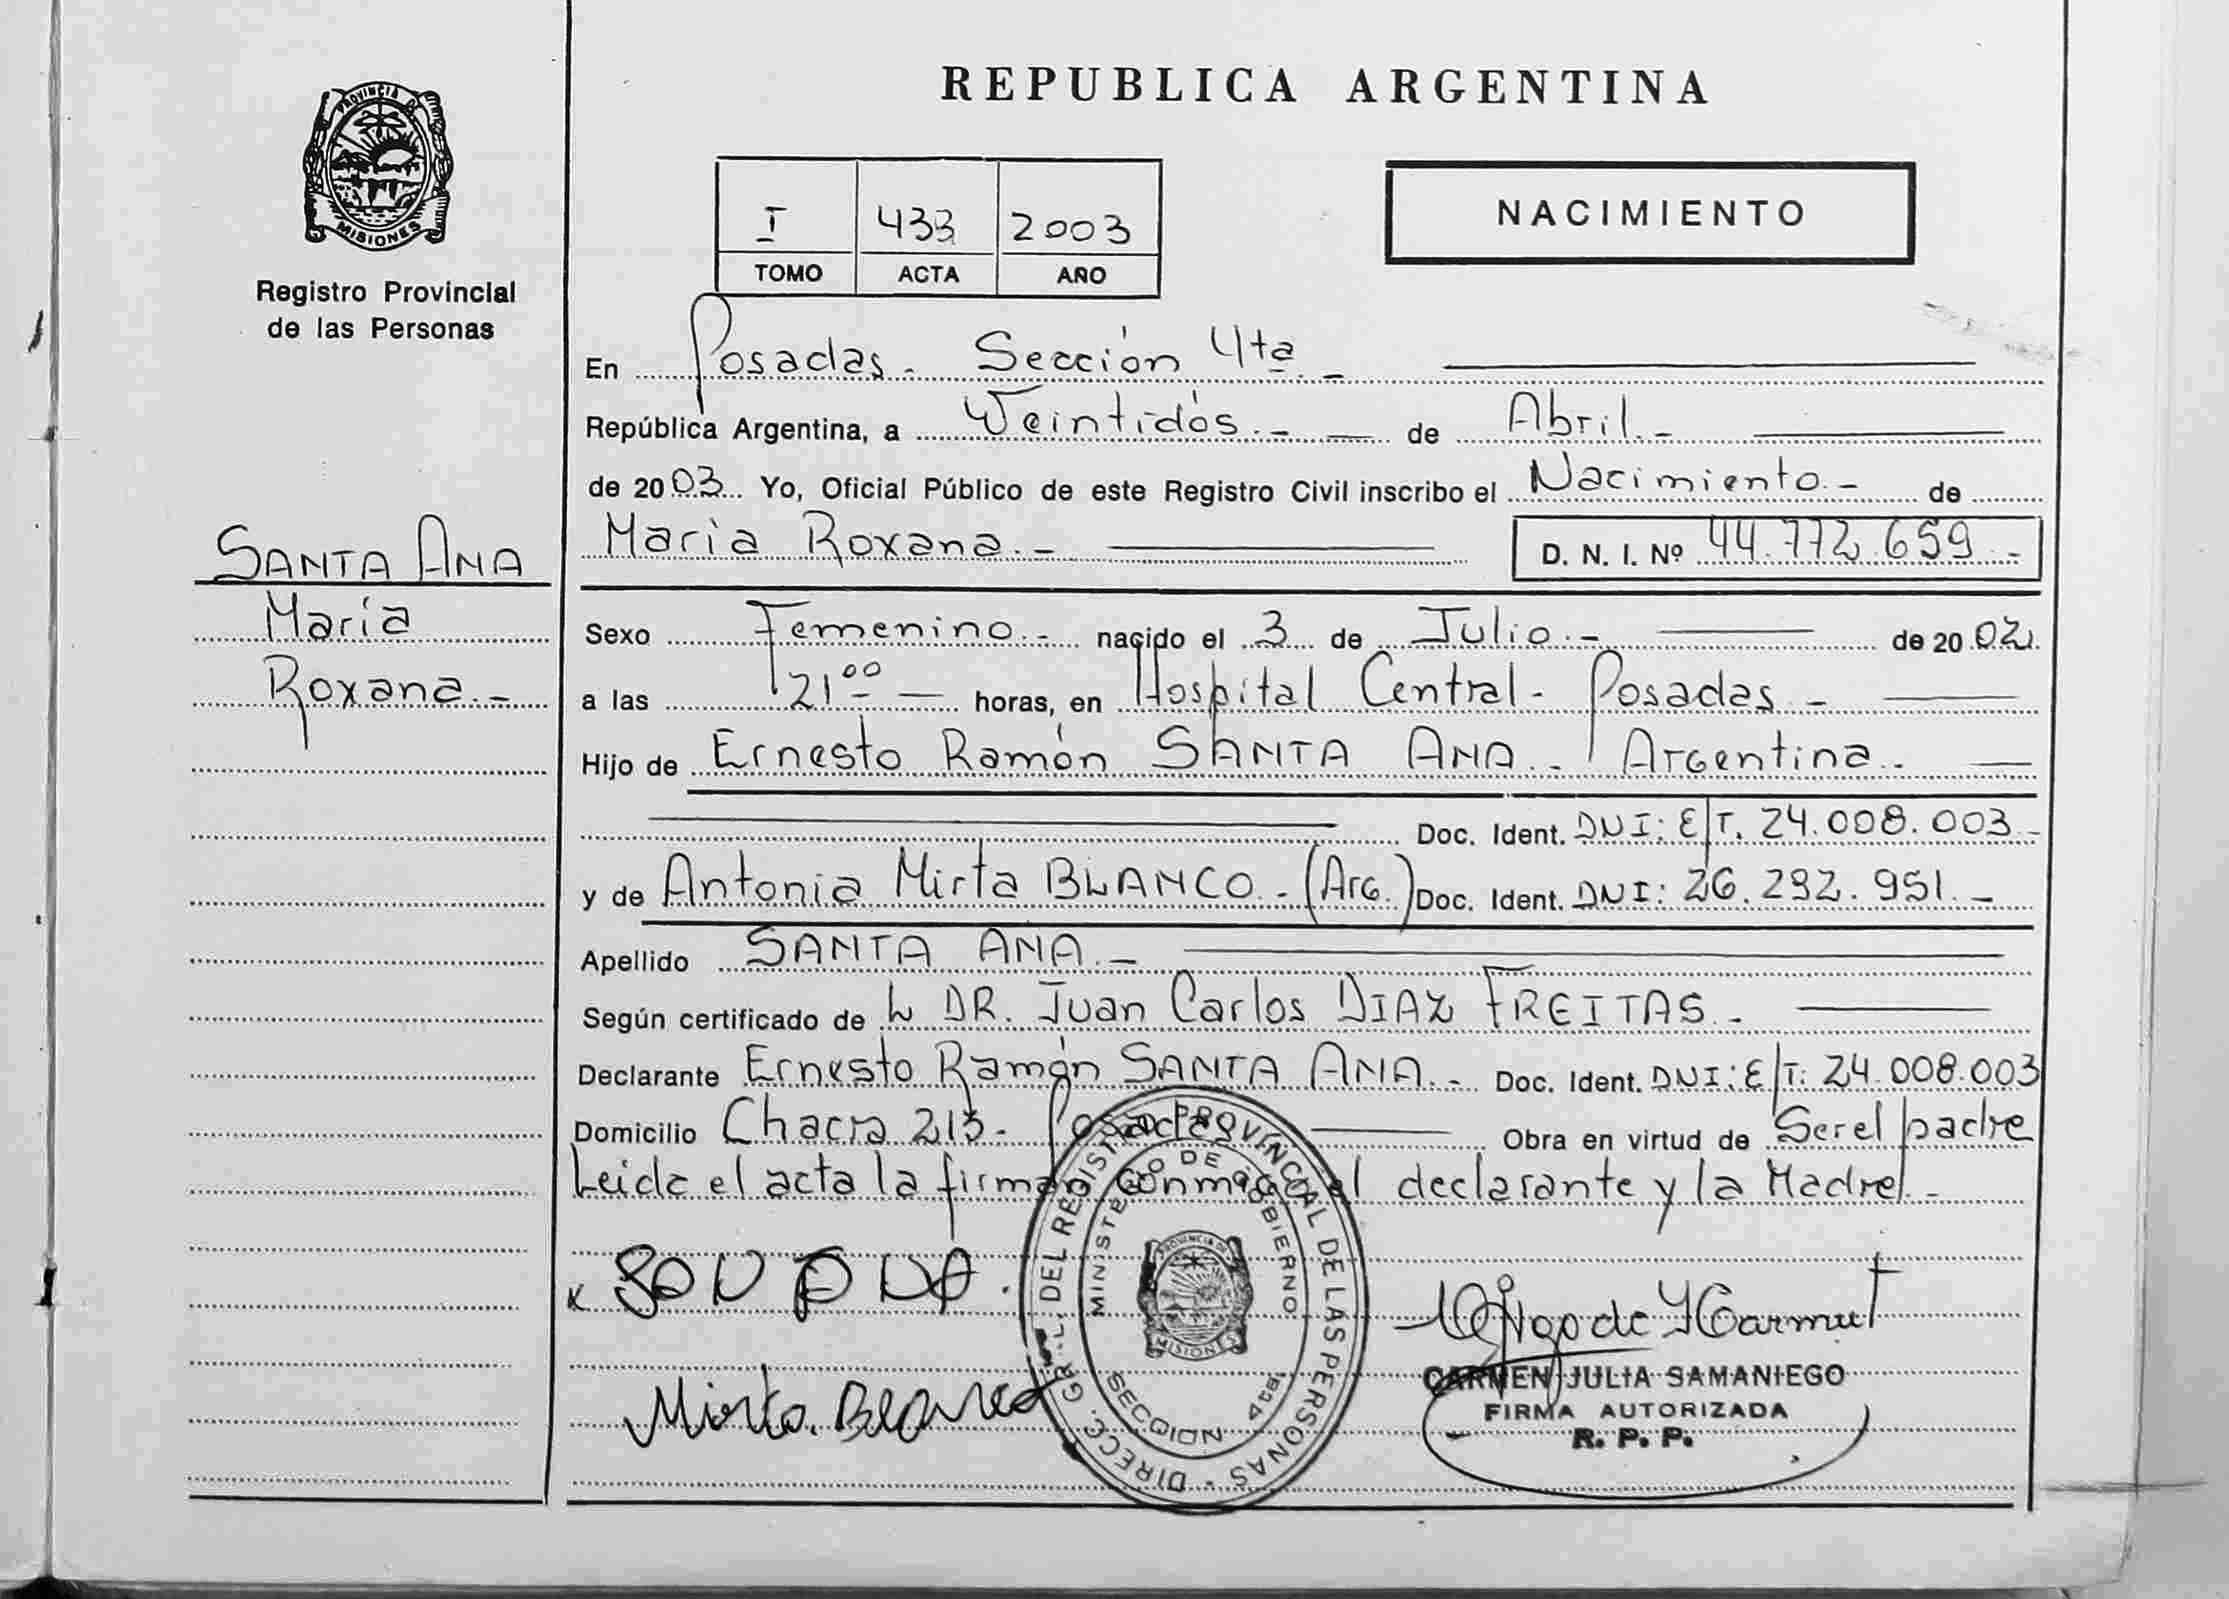 REPUBLICA ARGENTINA
PROVINCIA DE
MISIONES
Registro Provincial
de las Personas
I 433 2003
TOMO ACTA AÑO
NACIMIENTO
En Posadas.- Sección 4ta.-
República Argentina, a Veintidós.- de Abril.-
de 2003 Yo, Oficial Público de este Registro Civil inscribo el Nacimiento.- de
Maria Roxana.- D. N. I. Nº 44.772.659.-
SANTA ANA
María
Roxana.-
Sexo Femenino.- nacido el 3 de Julio.- de 2002.
a las 21 00 horas, en Hospital Central- Posadas.-
Hijo de Ernesto Ramón SANTA ANA.- Argentina.-
Doc. Ident. DNI: E/T. 24.008.003.-
y de Antonia Mirta BLANCO.- (Arg.) Doc. Ident. DNI: 26.292.951.-
Apellido SANTA ANA.-
Según certificado de L DR. Juan Carlos DIAZ FREITAS.-
Declarante Ernesto Ramón SANTA ANA.- Doc. Ident. DNI: E/T: 24.008.003
Domicilio Chacra 213- Posadas Obra en virtud de Ser el padre
Leida el acta la firman conmigo el declarante y la Madre.-
Mirta Blanco
DIRECC. GRAL. DEL REGISTRO PROVINCIAL DE LAS PERSONAS -
MINISTERIO DE GOBIERNO
PROVINCIA DE
MISIONES
SECCION 4ta.
CARMEN JULIA SAMANIEGO
FIRMA AUTORIZADA
R. P. P.